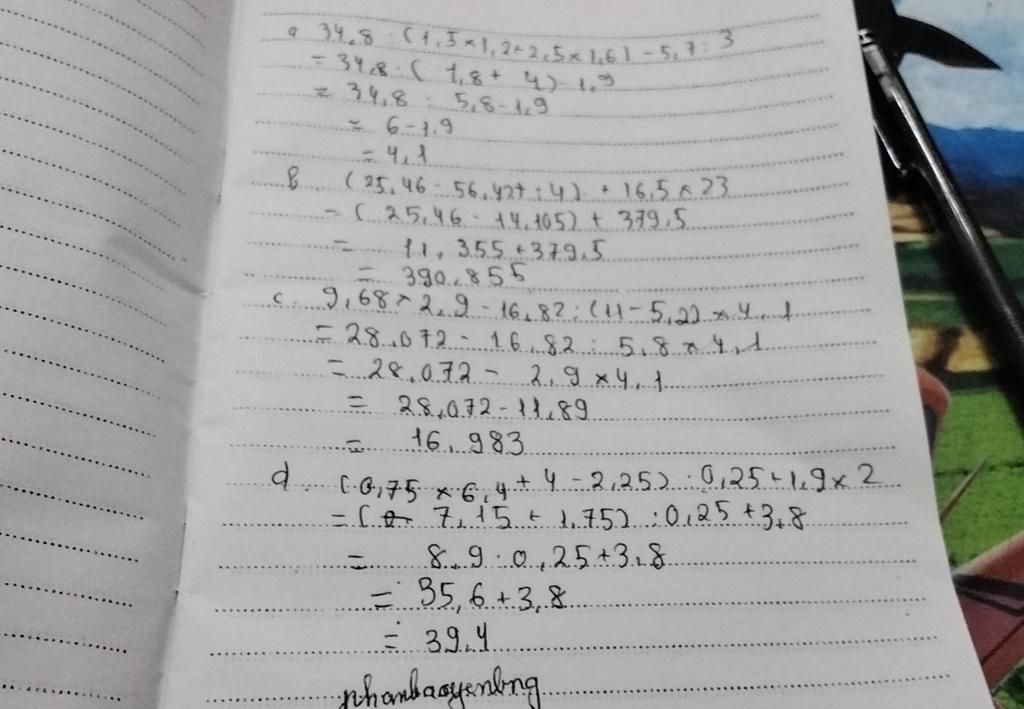 a 34,8 : (1,5 × 1,2 + 2,5 × 1,6) - 5,7 : 3
= 34,8 : ( 1,8 + 4) - 1,9
= 34,8 : 5,8 - 1,9
= 6 - 1,9
= 4,1
b. (25,46 - 56,42 : 4) + 16,5 × 23
= ( 25,46 - 14,105) + 379,5
= 11,355 + 379,5
= 390,855
c. 9,68 × 2,9 - 16,82 : (11 - 5,2) × 4,1
= 28,072 - 16,82 : 5,8 × 4,1
= 28,072 - 2,9 × 4,1
= 28,072 - 11,89
= 16,983
d. (0,75 × 6,4 + 4 - 2,25) : 0,25 + 1,9 × 2
= ( 7,15 + 1,75) : 0,25 + 3,8
= 8,9 : 0,25 + 3,8
= 35,6 + 3,8
= 39,4
nhanbaoyenbng